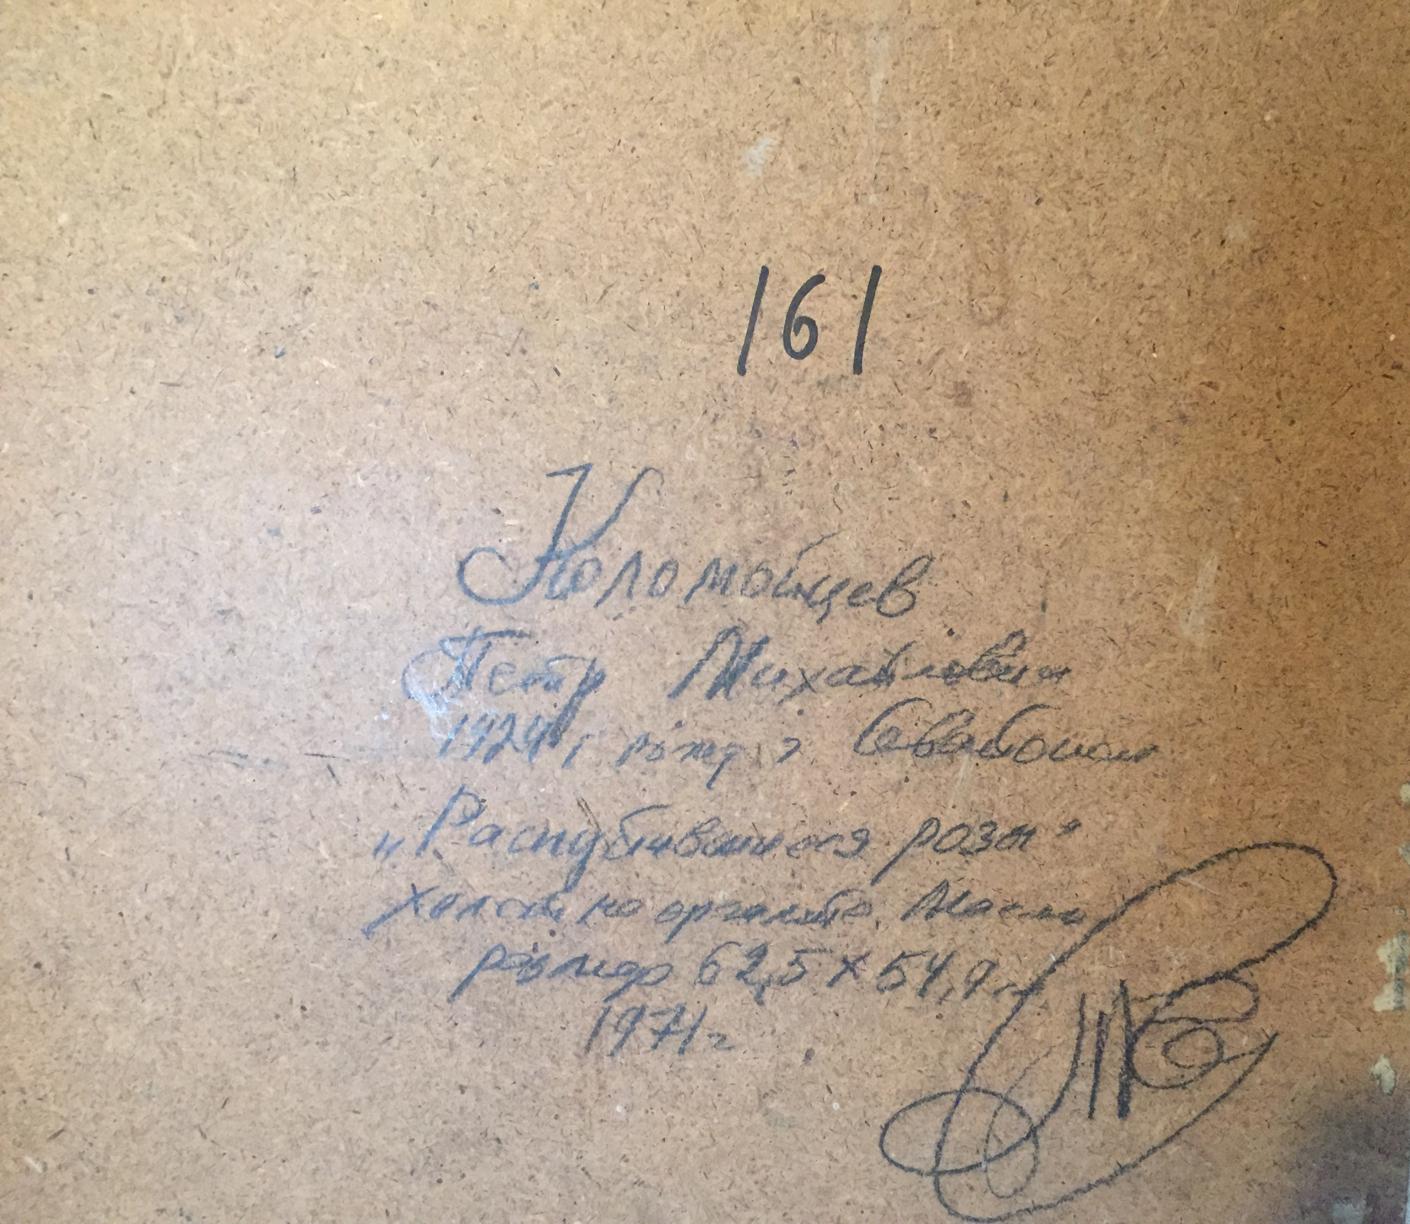 161
Коломойцев
Петр Михайлович
1924 г рожд г Севастополь
„Распустившиеся розы"
холст на оргалите. Масло
размер 62,5 х 54,9
1971г